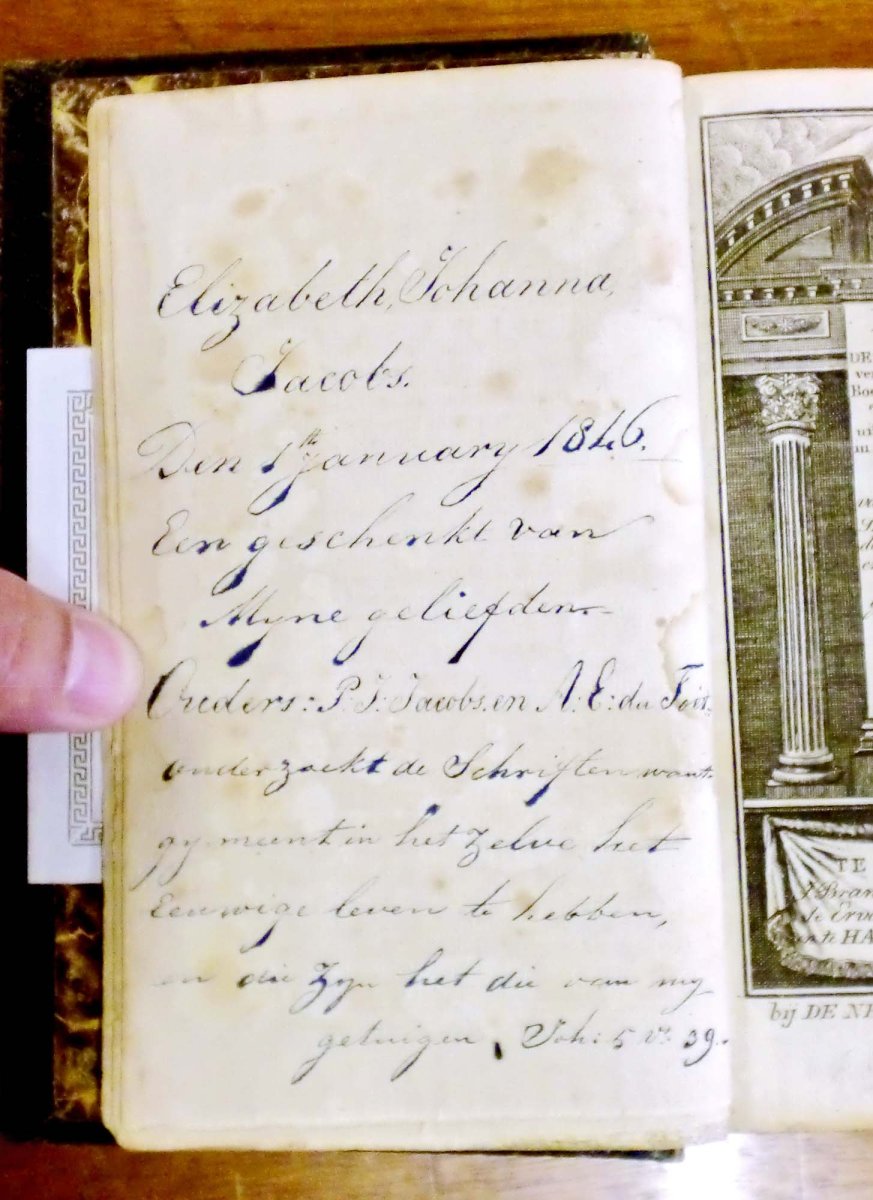 Elizabeth, Johanna,
Jacobs.
Den 1th January 1846.
Een geschenkt van
Myne geliefden
Ouders: P: J: Jacobs. en A: E: du Toit.
onderzoekt de Schriften want
gy meent in het zelve het
Eeuwige leven te hebben,
en die zyn het die van my
getuigen, Joh: 5 Vs 39.
DE
TE
J. Bran
HA
bij DE NE